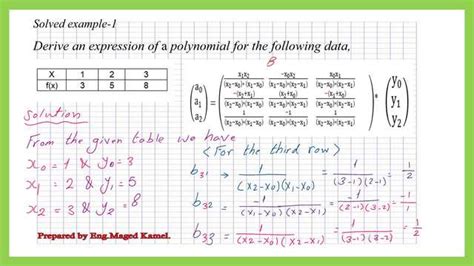 Solved example-1
Derive an expression of a polynomial for the following data,
B
X 1 2 3
f(x) 3 5 8
(a₀ a₁ a₂) = (x₁x₂/((x₂-x₀)*(x₁-x₀)) -x₀x₂/((x₂-x₁)*(x₁-x₀)) x₀x₁/((x₂-x₀)*(x₂-x₁))
-(x₂+x₁)/((x₂-x₀)*(x₁-x₀)) (x₂+x₀)/((x₂-x₁)*(x₁-x₀)) -(x₁+x₀)/((x₂-x₀)*(x₂-x₁))
1/((x₂-x₀)*(x₁-x₀)) -1/((x₂-x₁)*(x₁-x₀)) 1/((x₂-x₀)*(x₂-x₁))) * (y₀ y₁ y₂)
Solution
From the given table we have
<For the third row>
x₀=1 & y₀=3
b₃₁ = 1/((x₂-x₀)(x₁-x₀)) = 1/((3-1)(2-1)) = 1/2
x₁ = 2 & y₁=5
b₃₂ = -1/((x₂-x₁)(x₁-x₀)) = -1/((2-1)(3-2)) = -1
x₂ = 3 & y₂=8
b₃₃ = 1/((x₂-x₀)(x₂-x₁)) = 1/((3-1)(3-2)) = 1/2
Prepared by Eng.Maged Kamel.